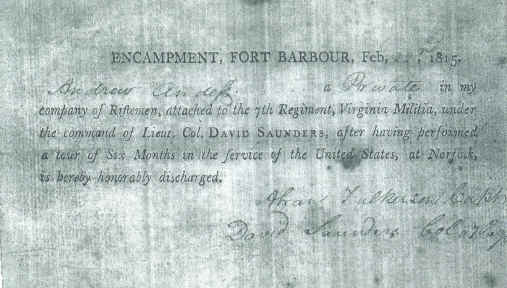 ENCAMPMENT, FORT BARBOUR, Feb, 1815.
Andrew a Private in my
company of Riflemen, attached to the 7th Regiment, Virginia Militia, under
the command of Lieut. Col. DAVID SAUNDERS, after having performed
a tour of Six Months in the service of the United States, at Norfolk,
is hereby honorably discharged.
Abram Fulkerson Capt
David Saunders Col